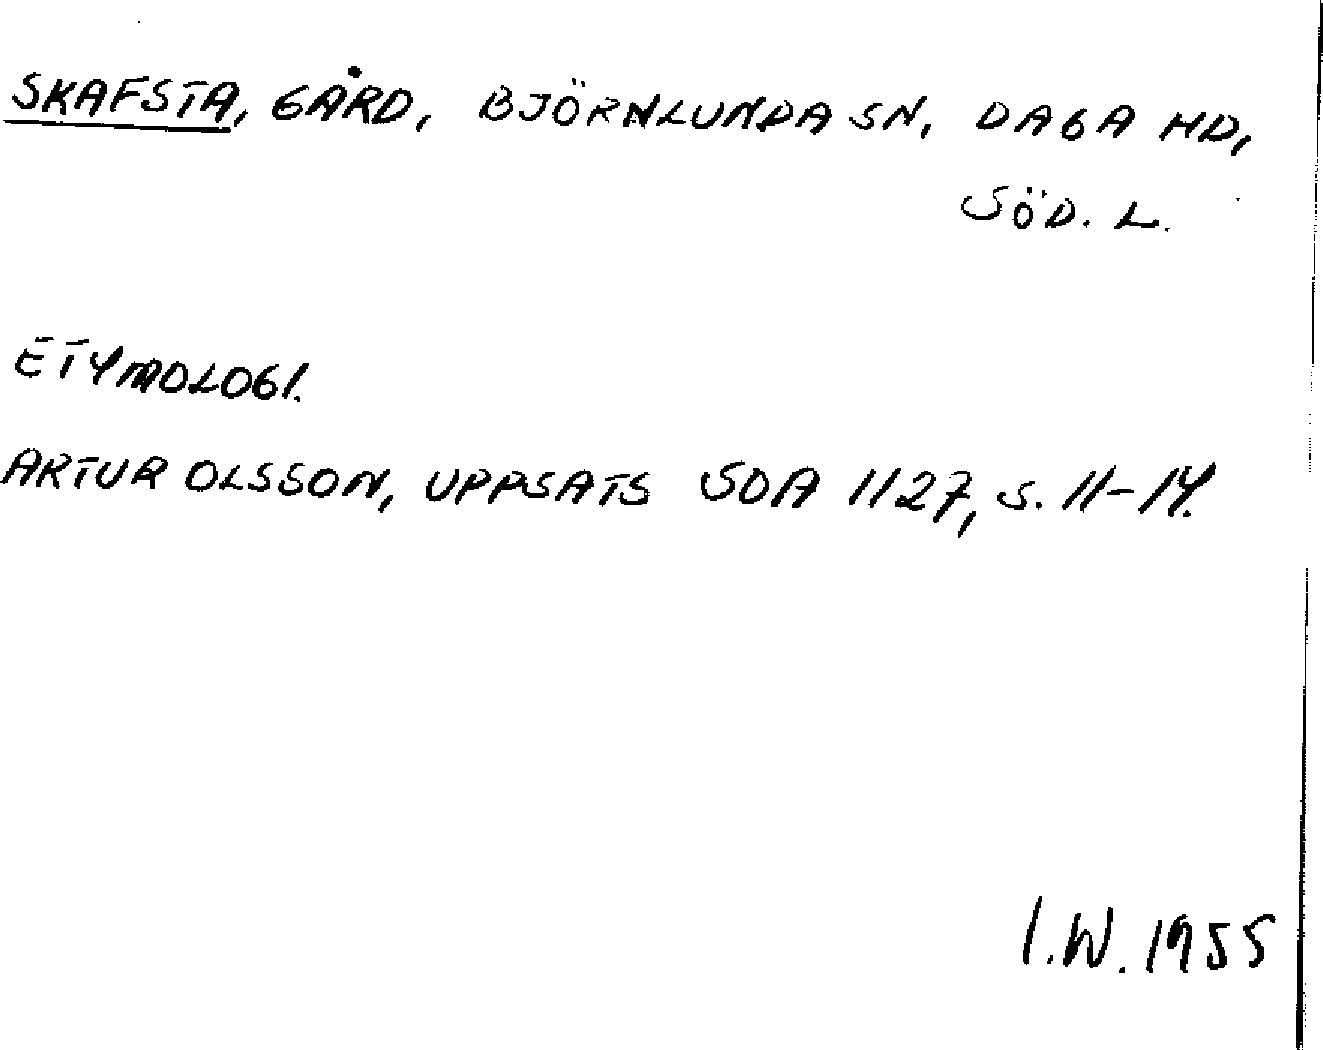 SKAFSTA, GÅRD, BJÖRNLUNDA SN, DAGA HD,
SÖD. L.
ETYMOLOGI.
ARTUR OLSSON, UPPSATS SOA 1127, S. 11-14.
I.W. 1955